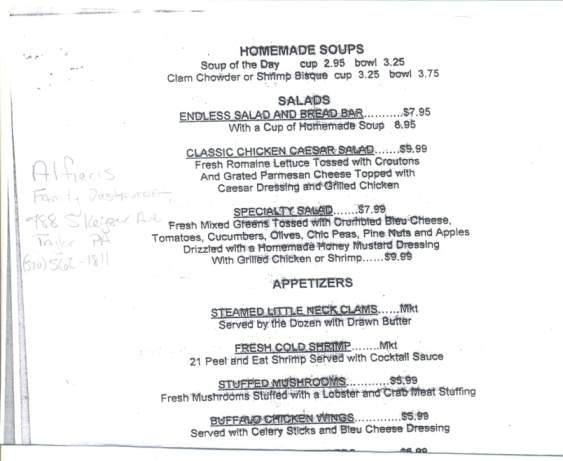 HOMEMADE SOUPS
Soup of the Day cup 2.95 bowl 3.25
Clam Chowder or Shrimp Bisque cup 3.25 bowl 3.75
SALADS
ENDLESS SALAD AND BREAD BAR...........$7.95
With a Cup of Homemade Soup 8.95
CLASSIC CHICKEN CAESAR SALAD.......$9.99
Fresh Romaine Lettuce Tossed with Croutons
And Grated Parmesan Cheese Topped with
Caesar Dressing and Grilled Chicken
SPECIALTY SALAD.......$7.99
Fresh Mixed Greens Tossed with Crumbled Bleu Cheese,
Tomatoes, Cucumbers, Olives, Chic Peas, Pine Nuts and Apples
Drizzled with a Homemade Honey Mustard Dressing
With Grilled Chicken or Shrimp......$9.99
Family
APPETIZERS
STEAMED LITTLE NECK CLAMS......Mkt
Served by the Dozen with Drawn Butter
FRESH COLD SHRIMP........Mkt
21 Peel and Eat Shrimp Served with Cocktail Sauce
STUFFED MUSHROOMS............$5.99
Fresh Mushrooms Stuffed with a Lobster and Crab Meat Stuffing
BUFFALO CHICKEN WINGS..............$5.99
Served with Celery Sticks and Bleu Cheese Dressing